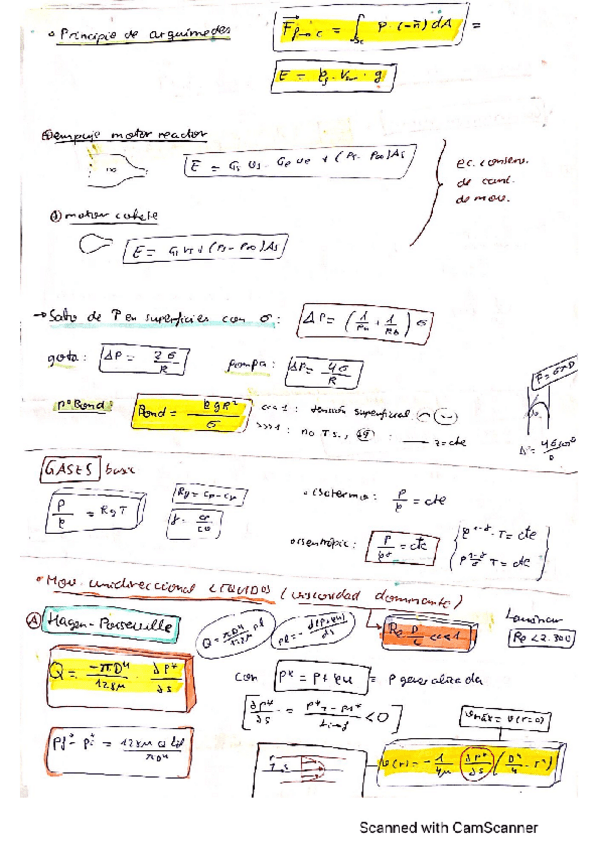 • Principio de arquímedes
F⃗p→c = ∫Sc P·(-n̄)dA =
E = ρf · Vsm · g
empuje motor reactor
E = Gs Us - Ge Ue + (Ps - P∞)As
ec. conserv.
de cant.
de mov.
motor cohete
E = Gs Us + (Ps - P∞)As
→ Salto de P en superficies con σ: ΔP = (1/Ra + 1/Rb) σ
gota: ΔP = 2σ/R pompa: ΔP = 4σ/R
F = σπD
nº Bond: Bond = ρgR²/σ <<<1: tensión superficial
>>>1: no T.S., z=cte
GASES base
P/ρ = Rg T
Rg = cp - cv
γ = cp/cv
• isotermo: P/ρ = cte
• isentrópic: P/ρ^γ = cte
ρ^(1-γ) · T = cte
P^((1-γ)/γ) T = cte
• Mov. unidireccional LÍQUIDOS (viscosidad dominante)
A Hagen-Poiseuille
Q = πD⁴/128μ Pl
Pl = -d(P+ρgz)/ds
Re D/L <<<1
Laminar
Re < 2.300
Q = -πD⁴/128μ · ∂P*/∂s
con P* = P + ρu = P generalizada
∂P*/∂s = <0
vmáx = v(r=0)
= 128μQ/πD⁴
v(r) = -1/4μ (∂P*/∂s) (D²/4 - r²)
Scanned with CamScanner